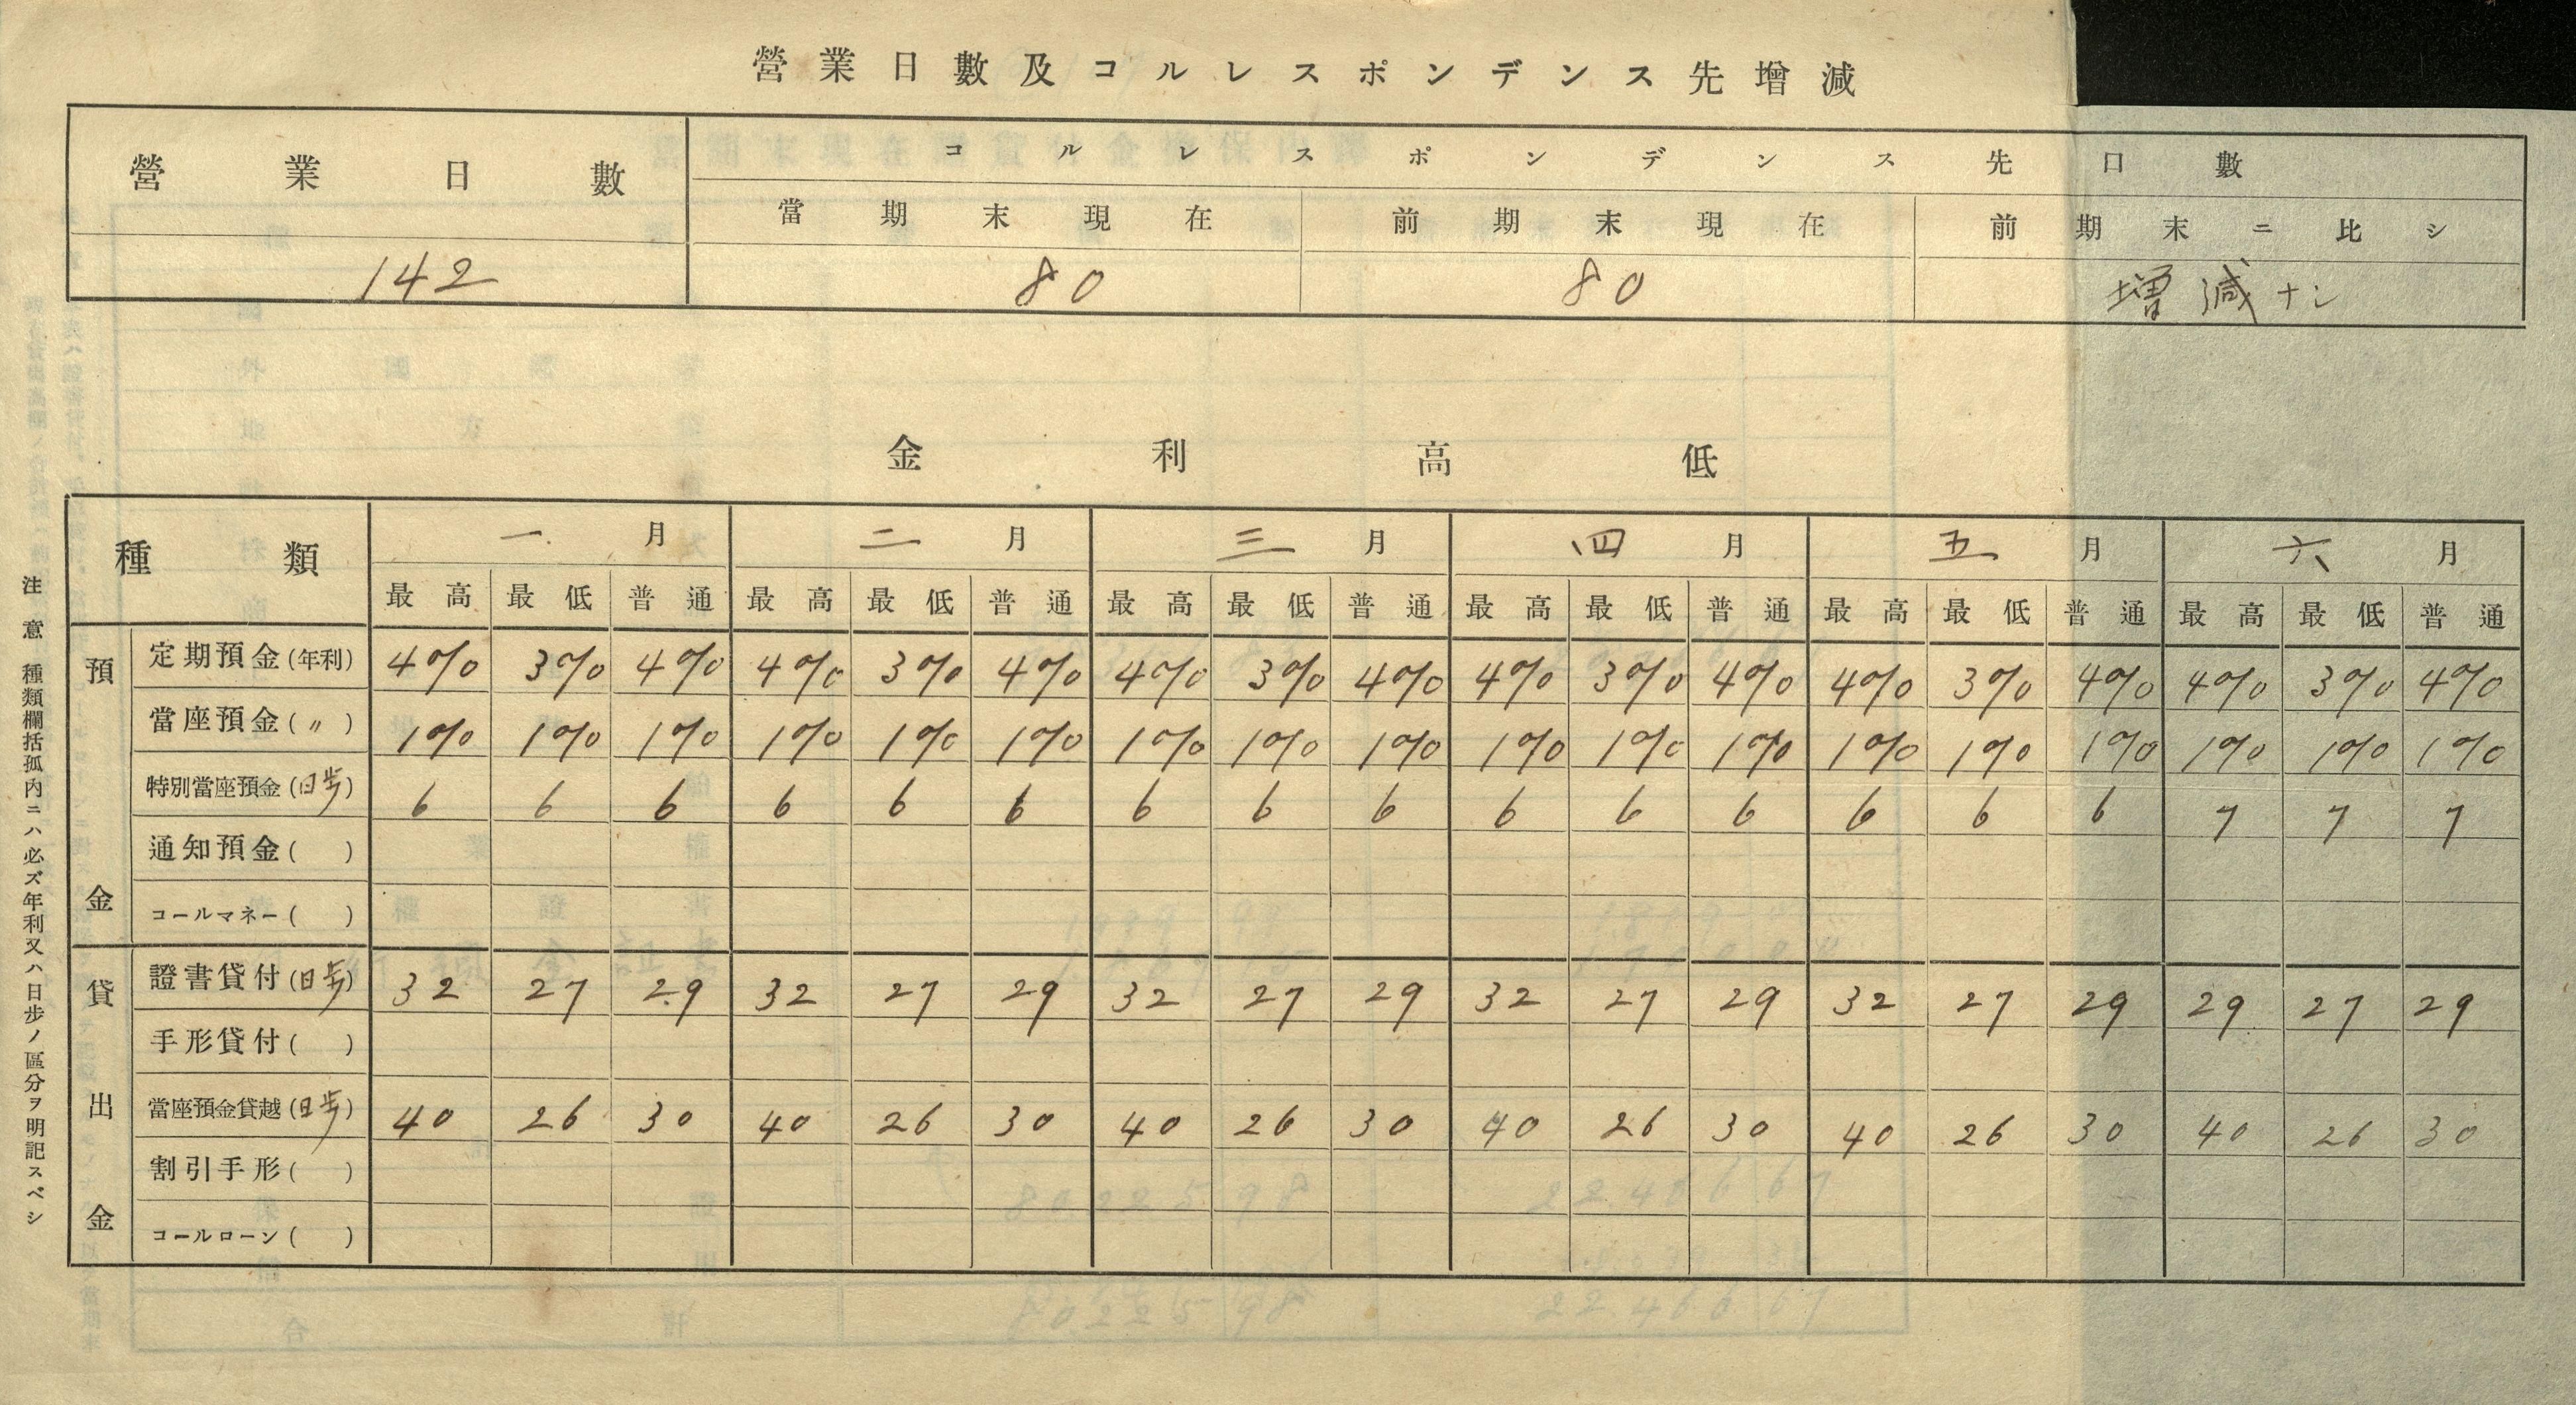 營業日數及コルレスポンデンス先增減
營業日數 コルレスポンデンス先口數
當期末現在 前期末現在 前期末ニ比シ
142 80 80 增減ナシ
金利高低
種類 一月 二月 三月 四月 五月 六月
最高 最低 普通 最高 最低 普通 最高 最低 普通 最高 最低 普通 最高 最低 普通 最高 最低 普通
預金
定期預金(年利) 4% 3% 4% 4% 3% 4% 4% 3% 4% 4% 3% 4% 4% 3% 4% 4% 3% 4%
當座預金(〃) 1% 1% 1% 1% 1% 1% 1% 1% 1% 1% 1% 1% 1% 1% 1% 1% 1% 1%
特別當座預金(日歩) 6 6 6 6 6 6 6 6 6 6 6 6 6 6 6 7 7 7
通知預金( )
コールマネー( )
貸出金
證書貸付(日歩) 32 27 29 32 27 29 32 27 29 32 27 29 32 27 29 29 27 29
手形貸付( )
當座預金貸越(日歩) 40 26 30 40 26 30 40 26 30 40 26 30 40 26 30 40 26 30
割引手形( )
コールローン( )
注意 種類欄括孤内ニハ必ズ年利又ハ日步ノ區分ヲ明記スベシ